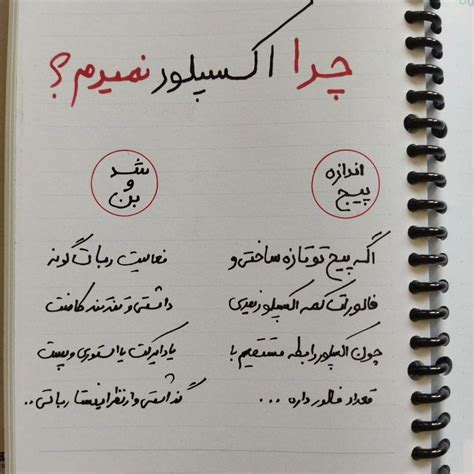 چرا اکسپلور نمیرم؟
اندازه
پیج
اگه پیج تو تازه ساختی و
فالورات کمه اکسپلور نمیری
چون اکسپلور رابطه مستقیم با
تعداد فالور داره ...
شد
و
بن
فعالیت ربات گونه
داشتی و تند تند کامنت
یا دایرکت یا استوری و پست
گذاشتی و از نظر اینستا رباتی..